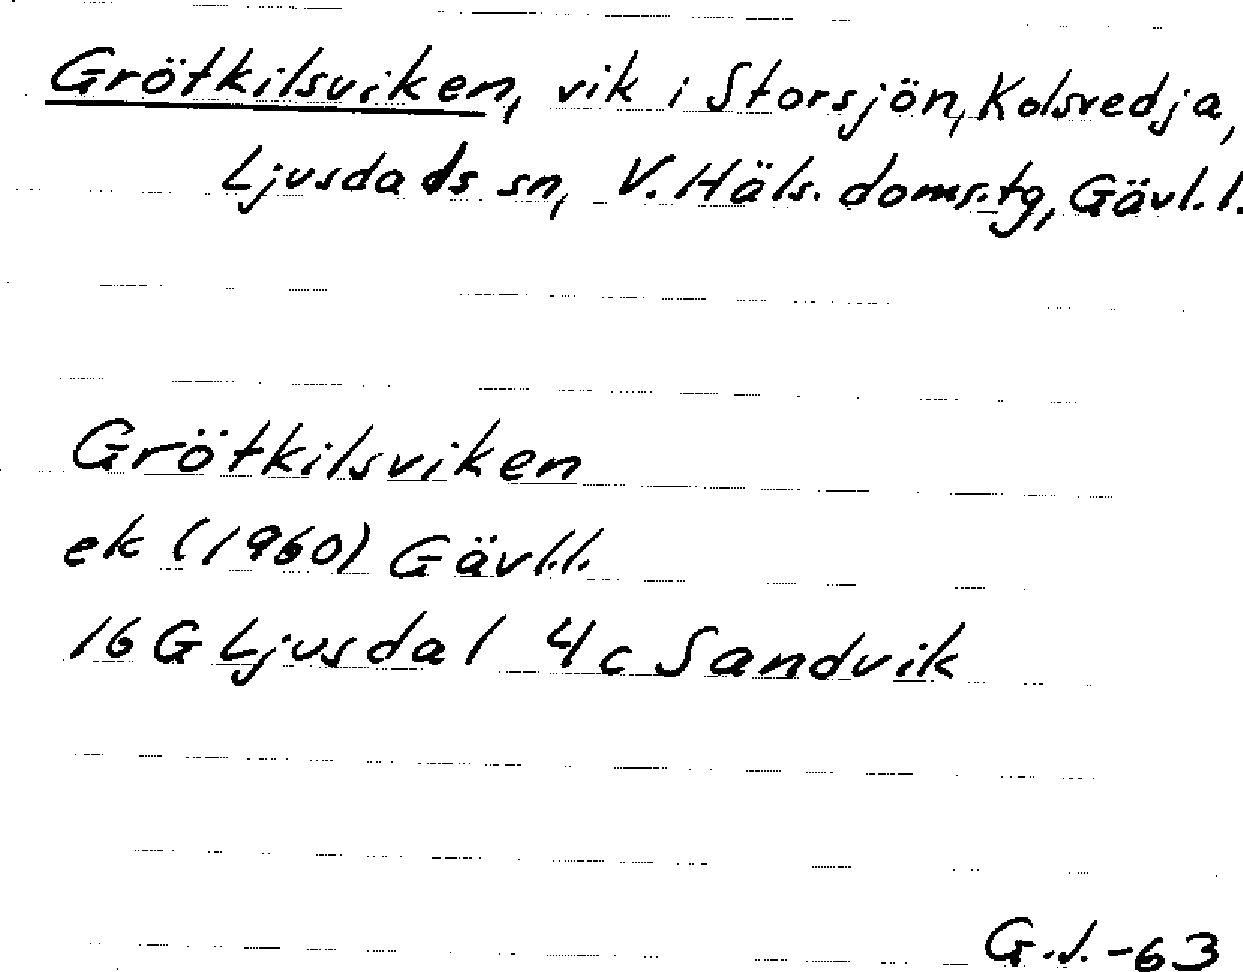 Grötkilsviken, vik i Storsjön, Kolsvedja,
Ljusdals sn, V. Häls. doms.tg, Gävl. l.
Grötkilsviken
ek (1960) Gävl.l.
16 G Ljusdal 4 c Sandvik
G.J.-63